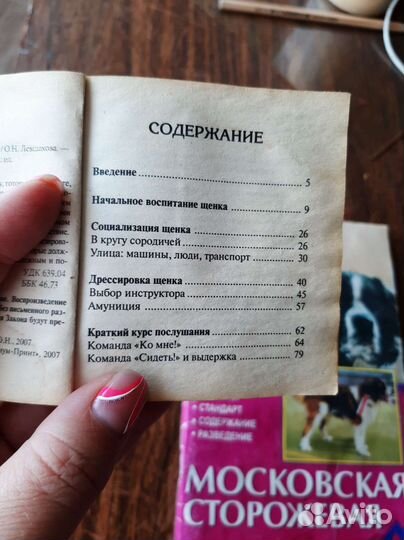 СОДЕРЖАНИЕ
Введение 5
Начальное воспитание щенка 9
Социализация щенка 26
В кругу сородичей 26
Улица: машины, люди, транспорт 30
Дрессировка щенка 40
Выбор инструктора 45
Амуниция 57
Краткий курс послушания 62
Команда «Ко мне!» 64
Команда «Сидеть!» и выдержка 79
/ О.Н. Левдахова. —
УДК 639.04
ББК 46.73
Воспроизведение
без письменного раз-
Закона будут пре-
О.Н., 2007
-Принт», 2007
СТАНДАРТ
СОДЕРЖАНИЕ
РАЗВЕДЕНИЕ
МОСКОВСКАЯ
СТОРОЖЕВАЯ
Avito